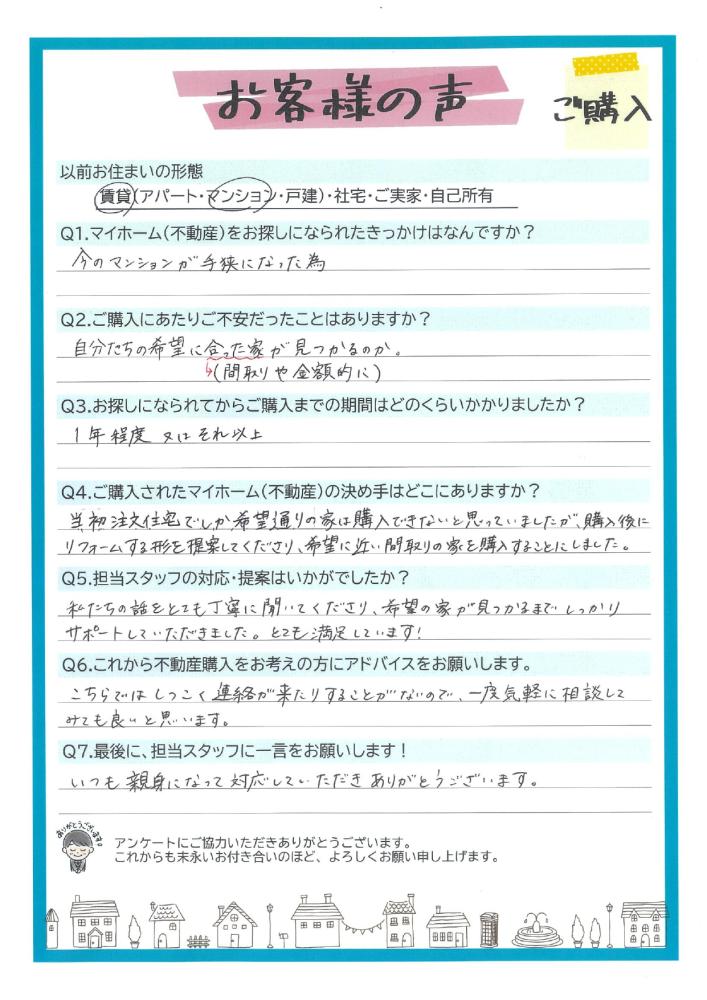 お客様の声
ご購入
以前お住まいの形態
賃貸(アパート・マンション・戸建)・社宅・ご実家・自己所有
Q1.マイホーム(不動産)をお探しになられたきっかけはなんですか？
今のマンションが手狭になった為
Q2.ご購入にあたりご不安だったことはありますか？
自分たちの希望に合った家が見つかるのか。
(間取りや金額的に)
Q3.お探しになられてからご購入までの期間はどのくらいかかりましたか？
1年程度 又はそれ以上
Q4.ご購入されたマイホーム(不動産)の決め手はどこにありますか？
当初注文住宅でしか希望通りの家は購入できないと思っていましたが、購入後に
リフォームする形を提案してくださり、希望に近い間取りの家を購入することにしました。
Q5.担当スタッフの対応・提案はいかがでしたか？
私たちの話をとても丁寧に聞いてくださり、希望の家が見つかるまでしっかり
サポートしていただきました。とても満足しています！
Q6.これから不動産購入をお考えの方にアドバイスをお願いします。
こちらではしつこく連絡が来たりすることがないので、一度気軽に相談して
みても良いと思います。
Q7.最後に、担当スタッフに一言をお願いします！
いつも親身になって対応していただきありがとうございます。
ありがとうございます
アンケートにご協力いただきありがとうございます。
これからも末永いお付き合いのほど、よろしくお願い申し上げます。